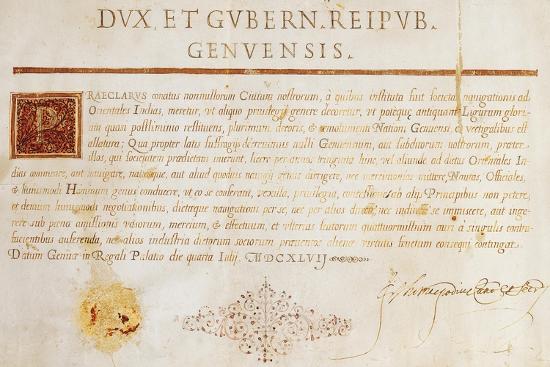 DVX ET GVBERN. REIPVB.
GENVENSIS.
PRAECLARVS conatus nonnullorum Ciuium nostrorum, à quibus instituta fuit societas nauigationis ad
Orientales Indias, meretur, ut aliquo priuilegij genere decoretur, ut potè quae antiquam Ligurum glori-
am quasi postliminio restituens, plurimum decoris, & emolumenti Nationi Genuensi, & vectigalibus est
allatura; Qua propter latis suffragijs decreuimus nulli Genuensium, aut subditorum nostrorum, praeter
illos, qui societatem praedictam inierint, licere per annos triginta hinc, vel aliunde ad dictas Orientales In-
dias commeare, aut nauigare, nauesque, aut aliud quoduis nauigij genus dirigere, nec eò mittere, Nautas, Officiales,
& huiusmodi Hominum genus conducere, ut eo se conferant, vexilla, priuilegia, ab alijs Principibus non petere,
et demum huiusmodi negotiationibus, dictaeque nauigationi per se, nec per alios directè, nec indirectè se immiscere, aut inge-
rere sub poena amissionis nauium, mercium, & effectuum, et vlterius scutorum quattuormillium auri à singulis contra-
facientibus auferenda, ne alios industria dictorum sociorum praeuentos alienae virtutis fructum consequi contingat.
Datum Genuae in Regali Palatio die quarta Iulij MDCXLVIJ